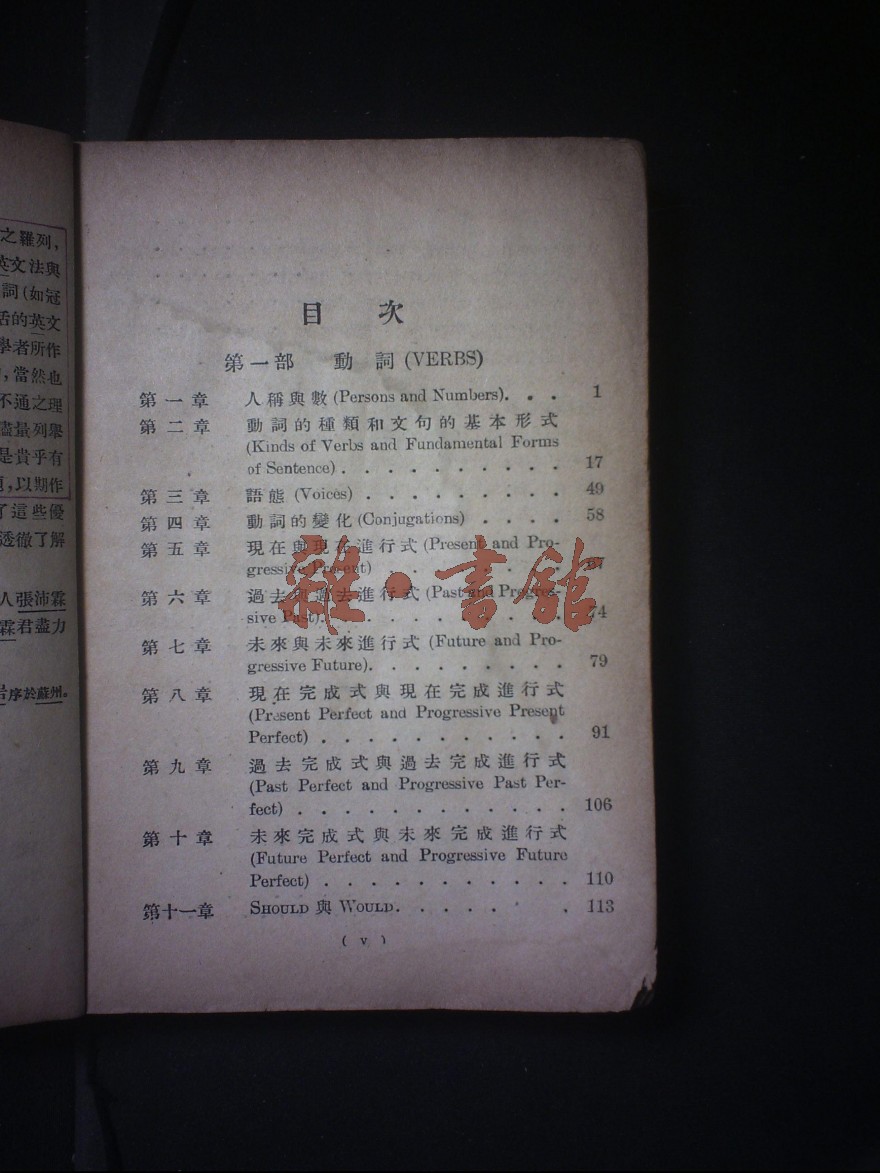 之羅列,
英文法與
詞(如冠
活的英文
學者所作
,當然也
不通之理
儘量列舉
是貴乎有
,以期作
了這些優
透徹了解
人張沛霖
霖君盡力
序於蘇州。
目 次
第一部 動 詞 (VERBS)
第 一 章 人稱與數 (Persons and Numbers). . . 1
第 二 章 動詞的種類和文句的基本形式
(Kinds of Verbs and Fundamental Forms
of Sentence) . . . . . . . . . . 17
第 三 章 語態 (Voices) . . . . . . . . . 49
第 四 章 動詞的變化 (Conjugations) . . . . 58
第 五 章 現在與現在進行式 (Present and Pro-
gressive Present) . . . . . . . . 67
第 六 章 過去與過去進行式 (Past and Progres-
sive Past). . . . . . . . . . . 74
第 七 章 未來與未來進行式 (Future and Pro-
gressive Future). . . . . . . . . 79
第 八 章 現在完成式與現在完成進行式
(Present Perfect and Progressive Present
Perfect) . . . . . . . . . . . 91
第 九 章 過去完成式與過去完成進行式
(Past Perfect and Progressive Past Per-
fect) . . . . . . . . . . . . 106
第 十 章 未來完成式與未來完成進行式
(Future Perfect and Progressive Future
Perfect) . . . . . . . . . . . 110
第十一章 SHOULD 與 WOULD. . . . . . . 113
( v )
雜·書館